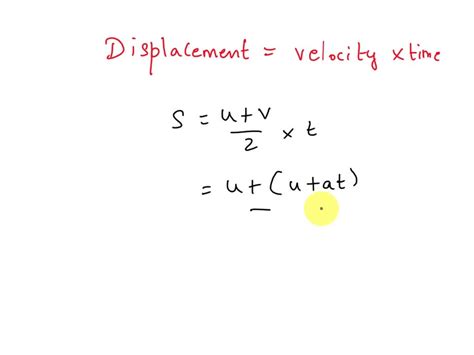 Displacement = velocity x time
S = u+v/2 × t
= u+(u+at)